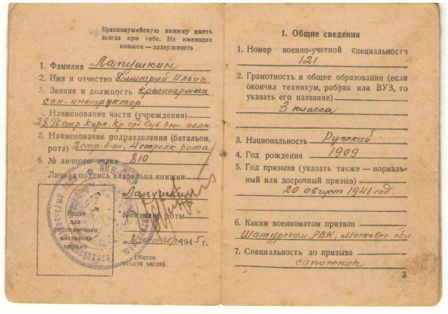 Красноармейскую книжку иметь
всегда при себе. Не имеющих
книжек — задерживать
1. Фамилия Лапушкин
2. Имя и отчество Дмитрий Ильич
3. Звание и должность красноармеец
сан-инструктор
4. Наименование части (учреждения)
28
5. Наименование подразделения (батальон,
рота) 2 стр. б-он, 4 стрелк. рота
6. № личного знака 810
Личная подпись владельца книжки
Лапушкин
Командир роты
1945 г.
(Место
печати части)
I. Общие сведения
1. Номер военно-учетной специальности
121
2. Грамотность и общее образование (если
окончил техникум, рабфак или ВУЗ, то
указать его название)
3 класса
3. Национальность Русский
4. Год рождения 1909
5. Год призыва (указать также — нормаль-
ный или досрочный призыв)
20 август 1941 год.
6. Каким военкоматом призван
Шатурским РВК, Московск. обл
7. Специальность до призыва
сапожник
3